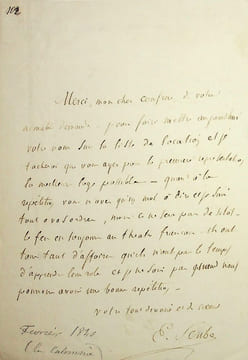 102
Merci, mon cher confrère, de votre
aimable demande. je vais faire mettre
votre nom sur la liste de location et je
tacherai que vous ayez pour la premiere representation
la meilleure loge possible – quant à la
repetition, vous n'avez qu'un mot à dire et je suis
tout à vos ordres, mais ce ne sera pas de sitot.
le feu est toujours au théatre francais – ils ont
tant d'affaires qu'ils n'ont pas le temps
d'apprendre leur role et je ne sais pas quand nous
pourrons avoir une bonne repetition –
votre tout devoué et de coeur
E. Scribe
Fevrier 1840
(La Calomnie)